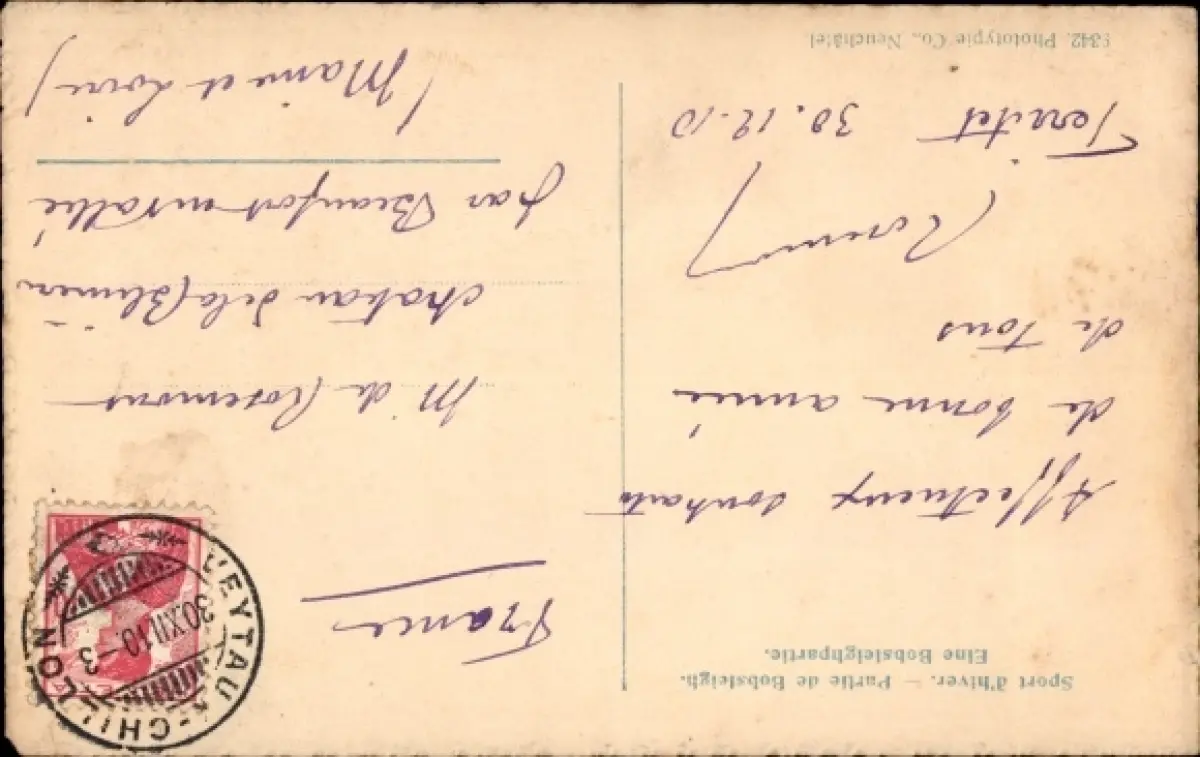 Sport d'hiver. — Partie de Bobsleigh.
Eine Bobsleighpartie.
Affectueux souhaits
de bonne année
de tous
Territet 30.12.10
9342. Phototypie Co., Neuchâtel
France
VEYTAUX-CHILLON
30.XII.10.–3
M de Rosemont
chateau de la
par Beaufort en vallée
(Maine et Loire)